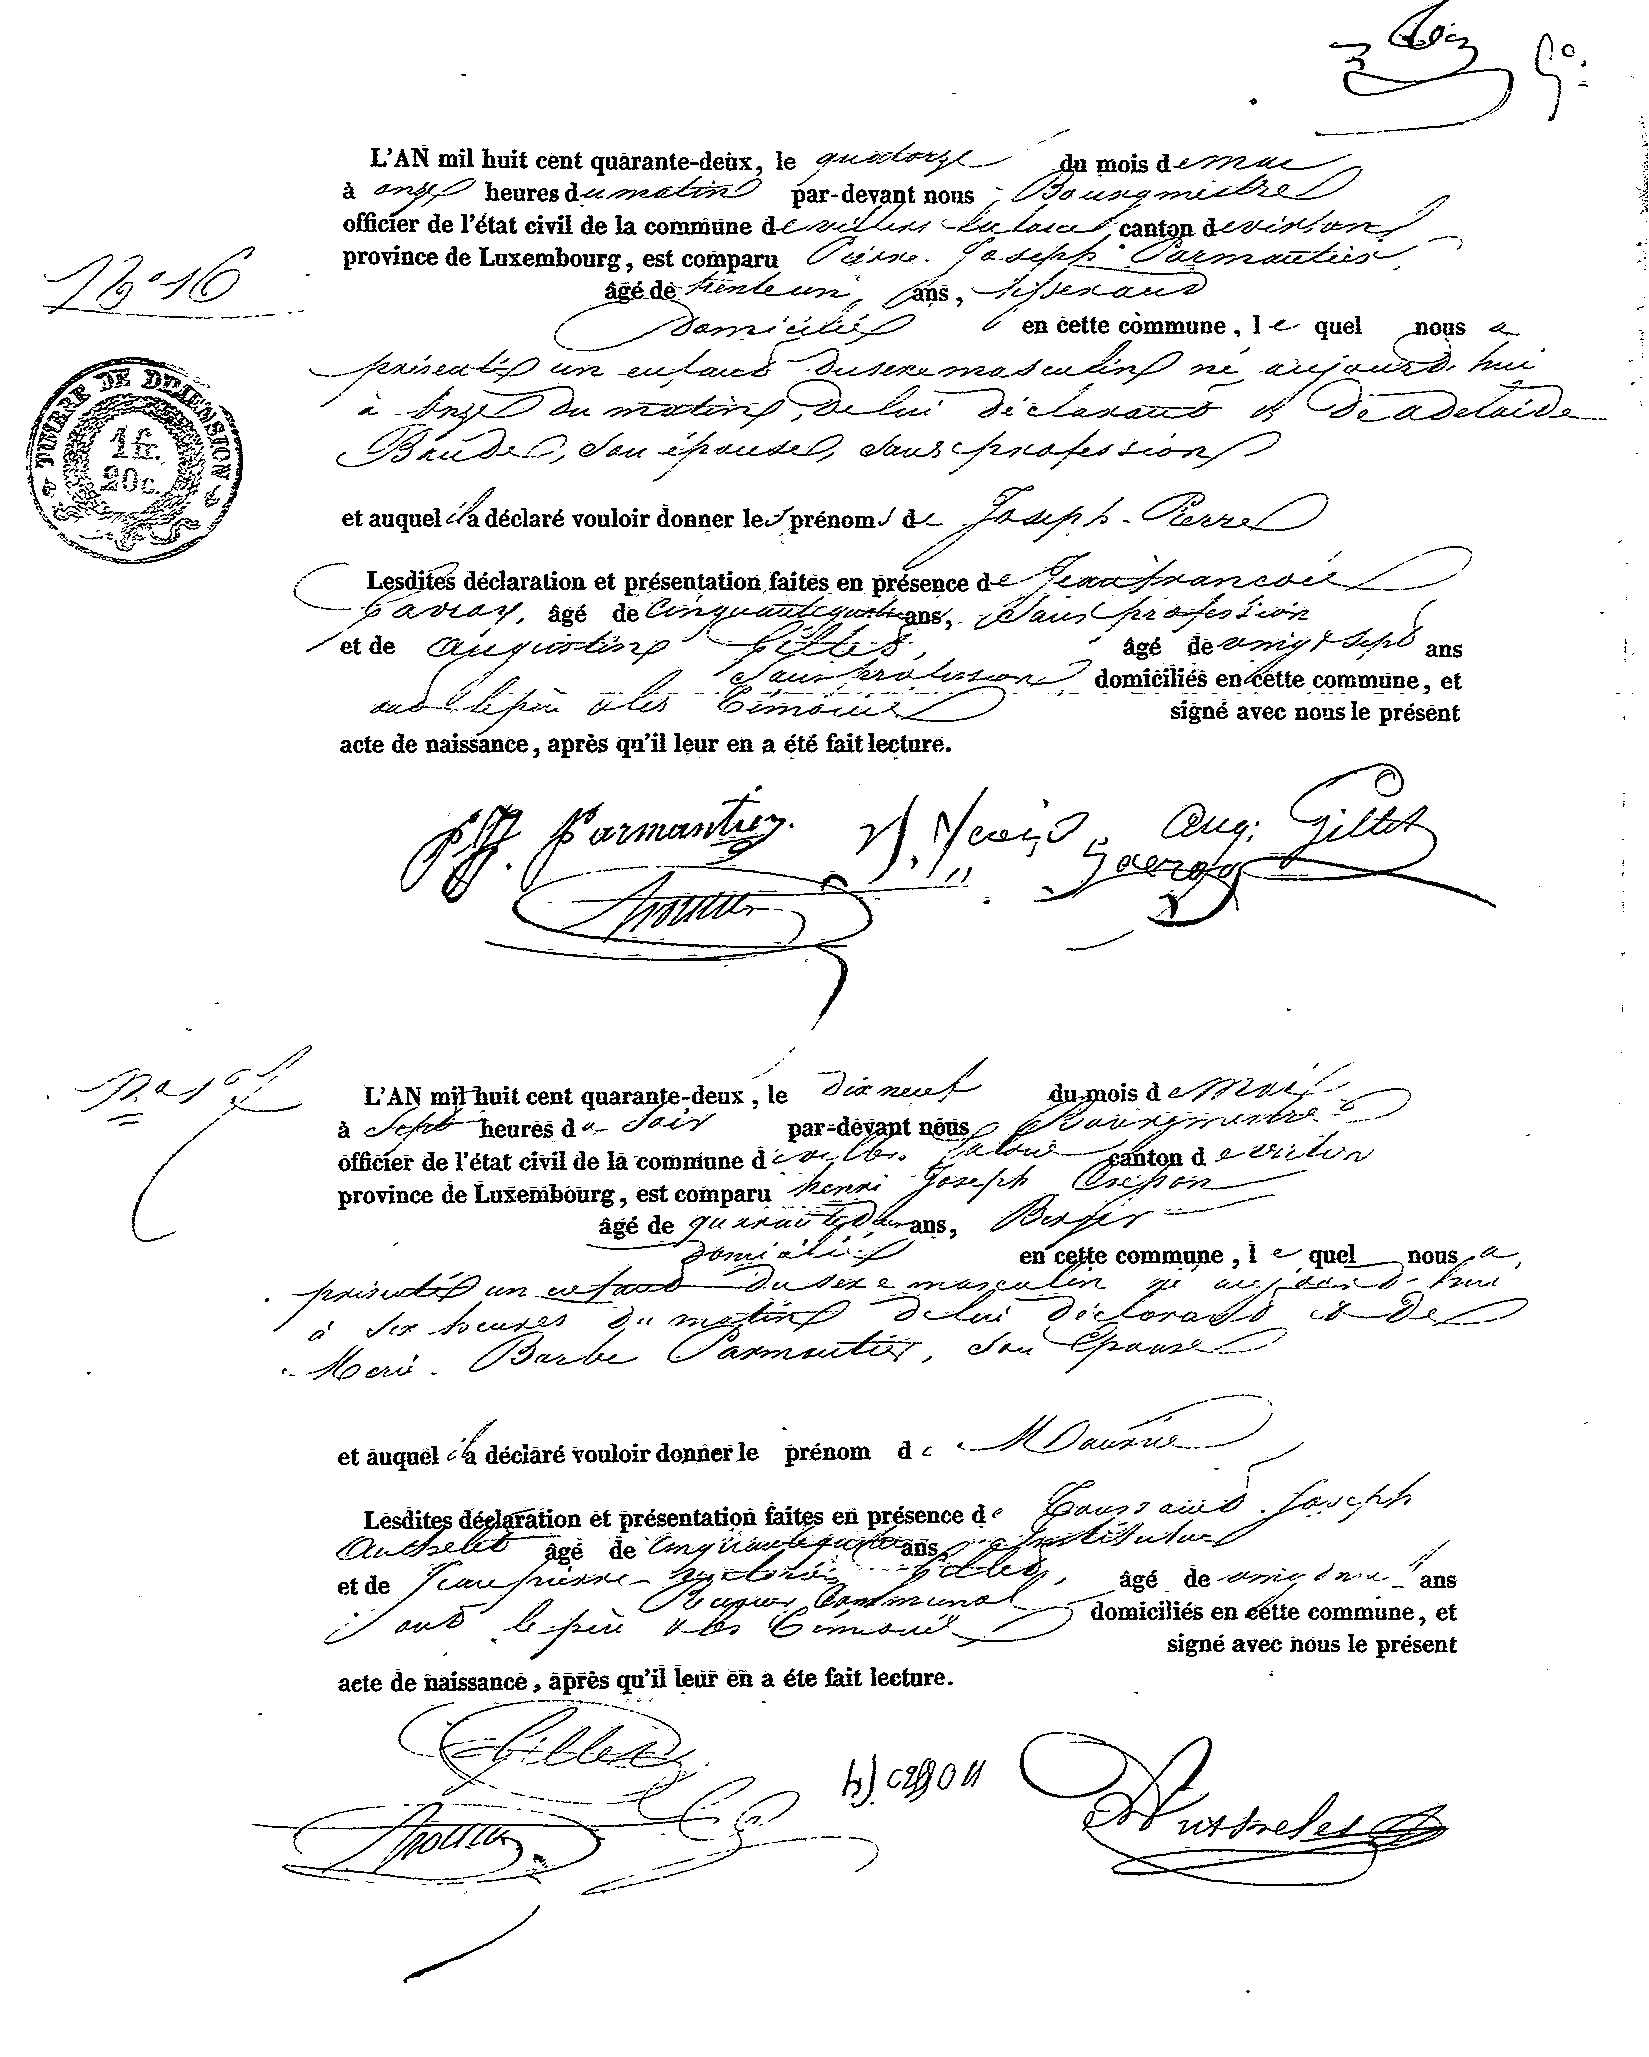 5º
L'AN mil huit cent quarante-deux, le quatorze du mois de mai
à onze heures du matin par-devant nous Bourgmestre
officier de l'état civil de la commune de villers la loue canton de virton
province de Luxembourg, est comparu Pierre Joseph Parmentier
Nº 16
âgé de trente un ans, tisserand
domicilié en cette commune, le quel nous a
présenté un enfant du sexe masculin né aujourd'hui
à onze du matin, de lui déclarant et de adelaide
Baude, son épouse, sans profession
TIMBRE DE DIMENSION
1 fr.
20 c.
et auquel il a déclaré vouloir donner les prénoms de Joseph-Pierre
Lesdites déclaration et présentation faites en présence de Jean françois
âgé de cinquante quatre ans, sans profession
et de augustin Gillet, âgé de vingt sept ans
sans profession domiciliés en cette commune, et
ont le père et les témoins signé avec nous le présent
acte de naissance, après qu'il leur en a été fait lecture.
PJ. Parmantier. Aug. Gillet
Nº 17
L'AN mil huit cent quarante-deux, le dix neuf du mois de mai
à sept heures du soir par-devant nous Bourgmestre
officier de l'état civil de la commune de villers la loue canton de virton
province de Luxembourg, est comparu henri Joseph Crépon
âgé de quarante deux ans, Berger
domicilié en cette commune, le quel nous a
présenté un enfant du sexe masculin né aujourd'hui
à six heures du matin de lui déclarant et de
Marie Barbe Parmentier, son épouse
et auquel il a déclaré vouloir donner le prénom de
Lesdites déclaration et présentation faites en présence de Toussaint Joseph
Authelet âgé de cinquante quatre ans instituteur
et de Jean pierre Gilles, âgé de vingt ans
Receveur Communal domiciliés en cette commune, et
ont le père et les témoins signé avec nous le présent
acte de naissance, après qu'il leur en a éte fait lecture.
Gilles